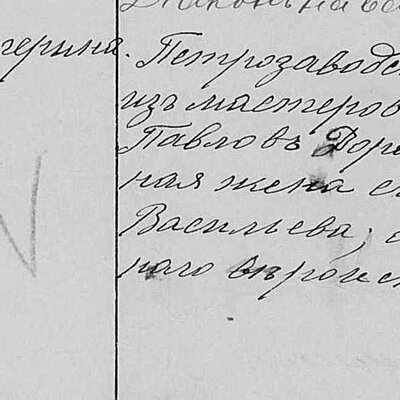 терина. Петрозаводс
изъ мастеров
Павловъ Доро
ная жена е
Васильева;
наго вѣроис